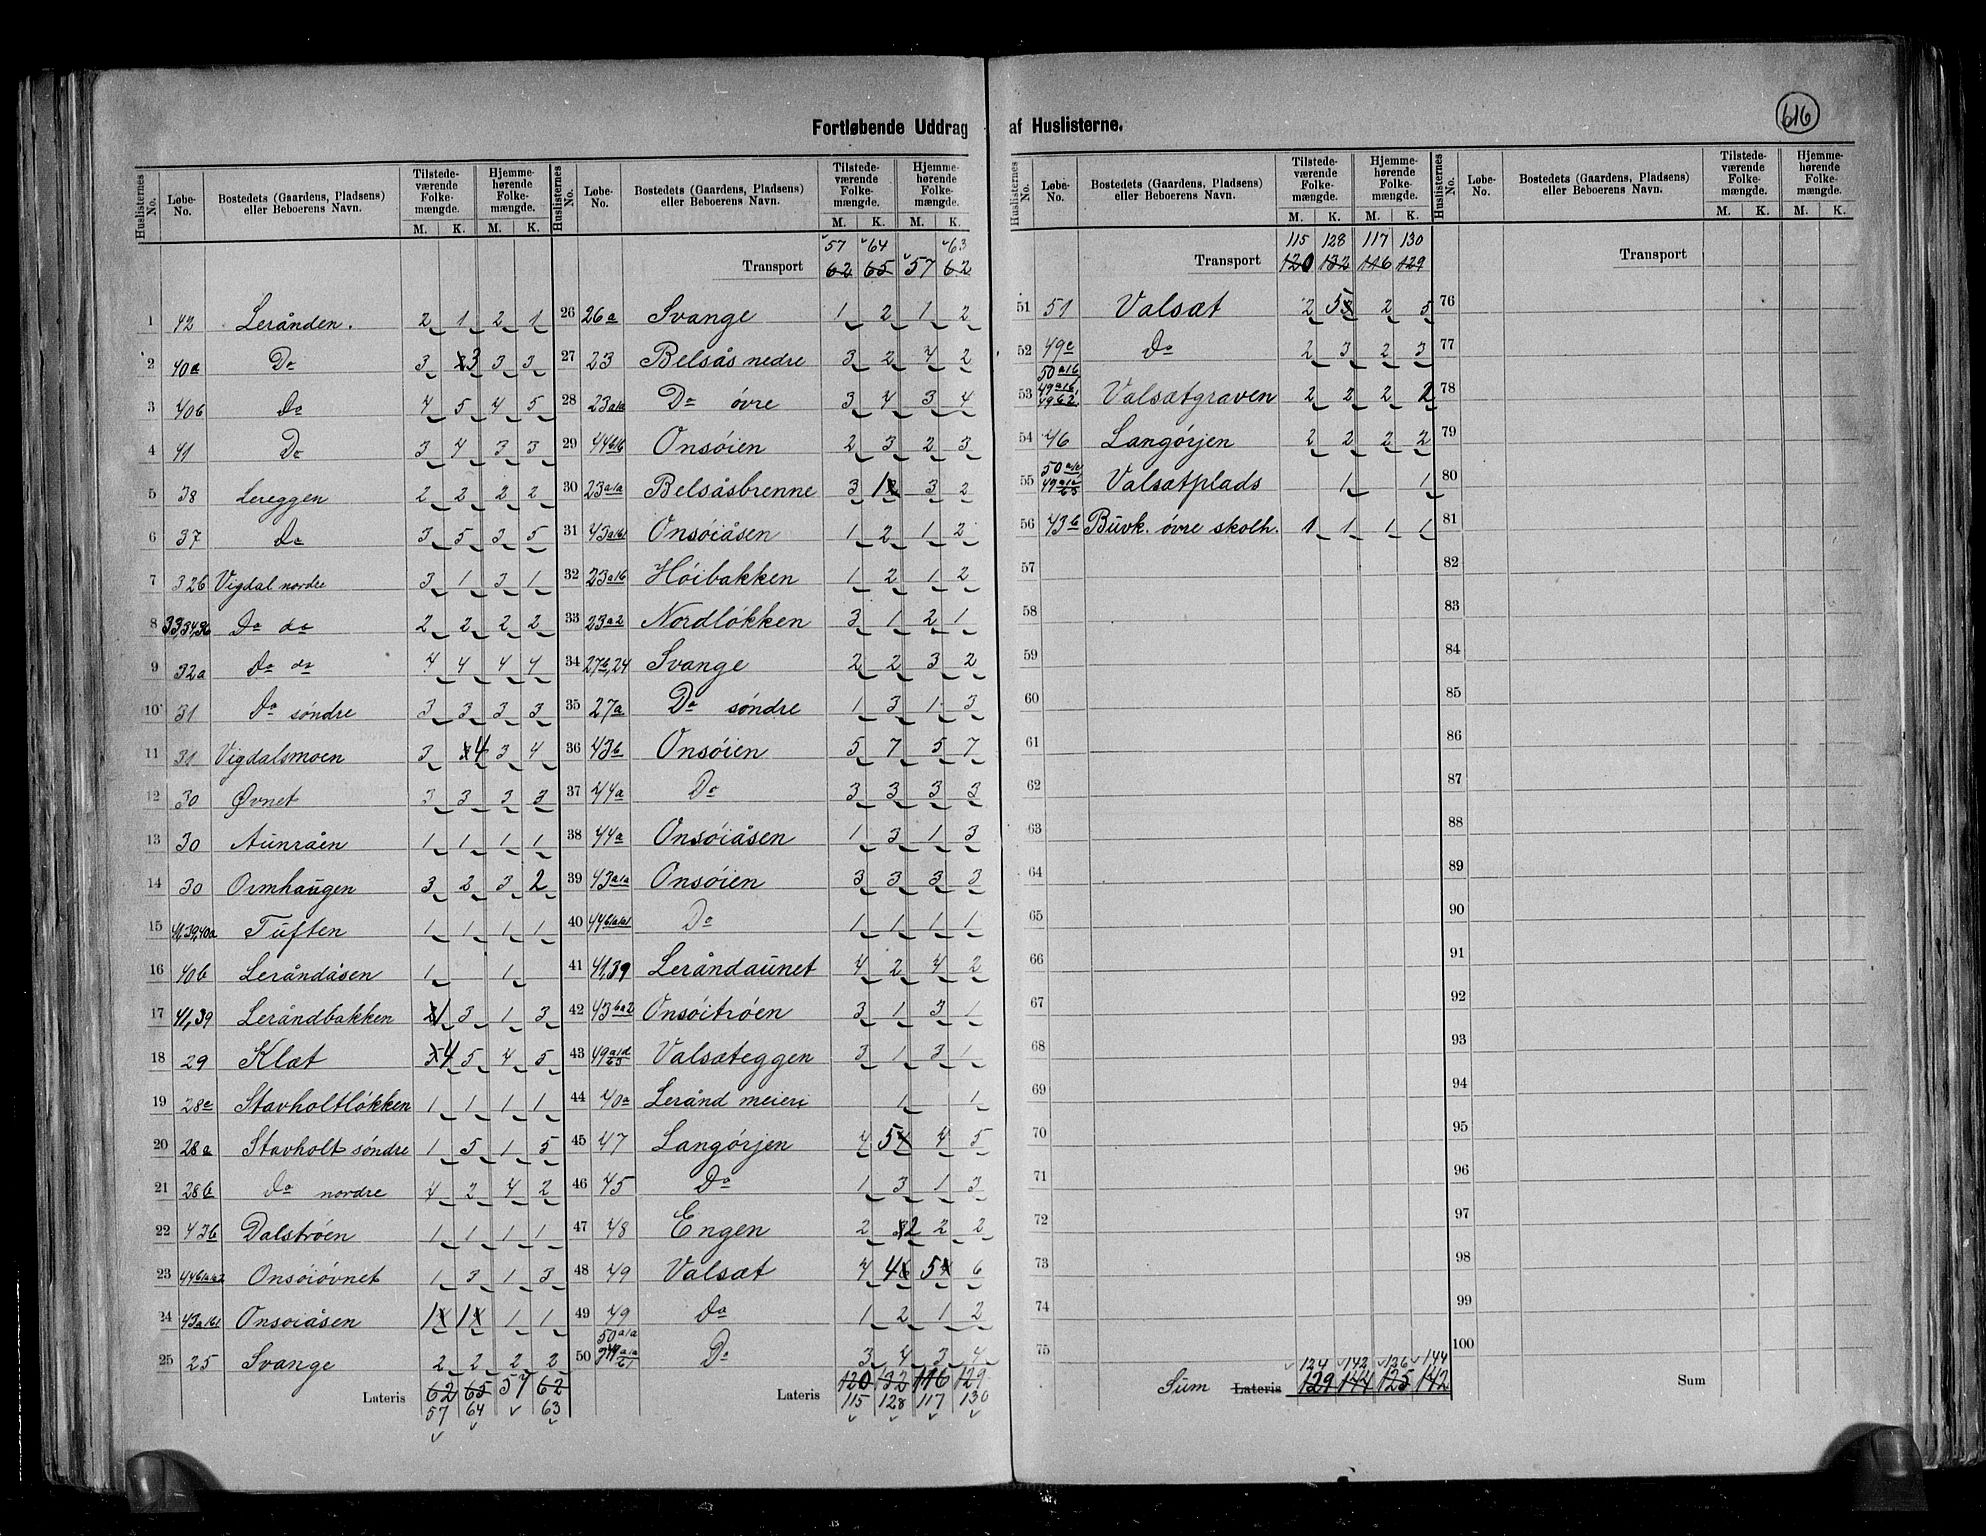 616
Fortløbende Uddrag af Huslisterne.
Huslisternes No. Løbe-No. Bostedets (Gaardens, Pladsens) eller Beboerens Navn. Tilstedeværende Folkemængde. M. K. Hjemmehørende Folkemængde. M. K.
1 42 Lerånden. 2 1 2 1
2 40a Do 3 3 3 3
3 40b Do 4 5 4 5
4 41 Do 3 4 3 3
5 38 Lereggen 2 2 2 2
6 37 Do 3 5 3 5
7 32b Vigdal nordre 3 1 3 1
8 33,34,36 Do do 2 2 2 2
9 32a Do do 4 4 4 4
10 31 Do søndre 3 3 3 3
11 31 Vigdalsmoen 3 4 3 4
12 30 Øvnet 3 3 3 3
13 30 Aunråen 1 1 1 1
14 30 Ormhaugen 3 2 3 2
15 41,39,40a Tuften 1 1 1 1
16 40b Leråndåsen 1 1
17 41,39 Leråndbakken 1 3 1 3
18 29 Klæt 4 5 4 5
19 28c Stavholtløkken 1 1 1 1
20 28a Stavholt søndre 1 5 1 5
21 28b Do nordre 4 2 4 2
22 43b Dalstrøen 1 1 1 1
23 Onsøiøvnet 1 3 1 3
24 Onsøiåsen 1 1 1 1
25 25 Svange 2 2 2 2
Lateris 62 65 57 62
57 64 63
57 64 63
Transport 62 65 57 62
26 26a Svange 1 2 1 2
27 23 Belsås nedre 3 2 4 2
28 23a1a Do øvre 3 4 3 4
29 44b1b Onsøien 2 3 2 3
30 23a1a Belsåsbrenne 3 1 3 2
31 43a1b1 Onsøiåsen 1 2 1 2
32 23a1b Høibakken 1 2 1 2
33 23a2 Nordløkken 3 1 2 1
34 27b,24 Svange 2 2 3 2
35 27a Do søndre 1 3 1 3
36 43b Onsøien 5 7 5 7
37 44a Do 3 3 3 3
38 44a Onsøiåsen 1 3 1 3
39 43a1a Onsøien 3 3 3 3
40 44b1a1a1 Do 1 1 1 1
41 41,39 Leråndaunet 4 2 4 2
42 43ba2 Onsøitrøen 3 1 3 1
43 49a1d/63 Valsæteggen 3 1 3 1
44 40a Lerånd meieri 1 1
45 47 Langørjen 4 5 4 5
46 45 Do 1 3 1 3
47 48 Engen 2 2 2 2
48 49 Valsæt 4 4 5 6
49 49 Do 1 2 1 2
50 50a1a Do 3 4 3 4
Lateris 120 132 116 129
115 128 117 130
115 128 117 130
Transport 120 132 116 129
51 51 Valsæt 2 5 2 5
52 49c Do 2 3 2 3
53 50a1b 49a1b 49c2 Valsætgraven 2 2 2 2
54 46 Langørjen 2 2 2 2
55 50a1c 49a1a/63 Valsætplads 1 1
56 43b Buvk. øvre skolh. 1 1 1 1
57
58
59
60
61
62
63
64
65
66
67
68
69
70
71
72
73
74
75
124 142 126 144
Sum Lateris 129 144 125 142
Transport
76
77
78
79
80
81
82
83
84
85
86
87
88
89
90
91
92
93
94
95
96
97
98
99
100
Sum